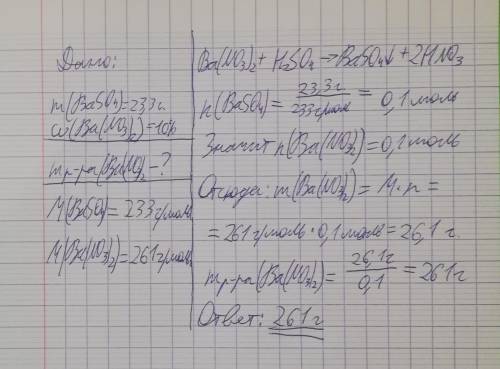 Дано:
m(BaSO₄)=23,3г.
ω(Ba(NO₃)₂)=10%
mр-ра(Ba(NO₃)₂-?
M(BaSO₄)=233г/моль
M(Ba(NO₃)₂)=261г/моль
Ba(NO₃)₂+H₂SO₄→BaSO₄↓+2HNO₃
n(BaSO₄)= 23,3г / 233г/моль = 0,1моль
Значит n(Ba(NO₃)₂)=0,1моль
Отсюда: m(Ba(NO₃)₂)=M·n=
=261г/моль·0,1моль=26,1г.
mр-ра(Ba(NO₃)₂)= 26,1г / 0,1 =261г
Ответ: 261г